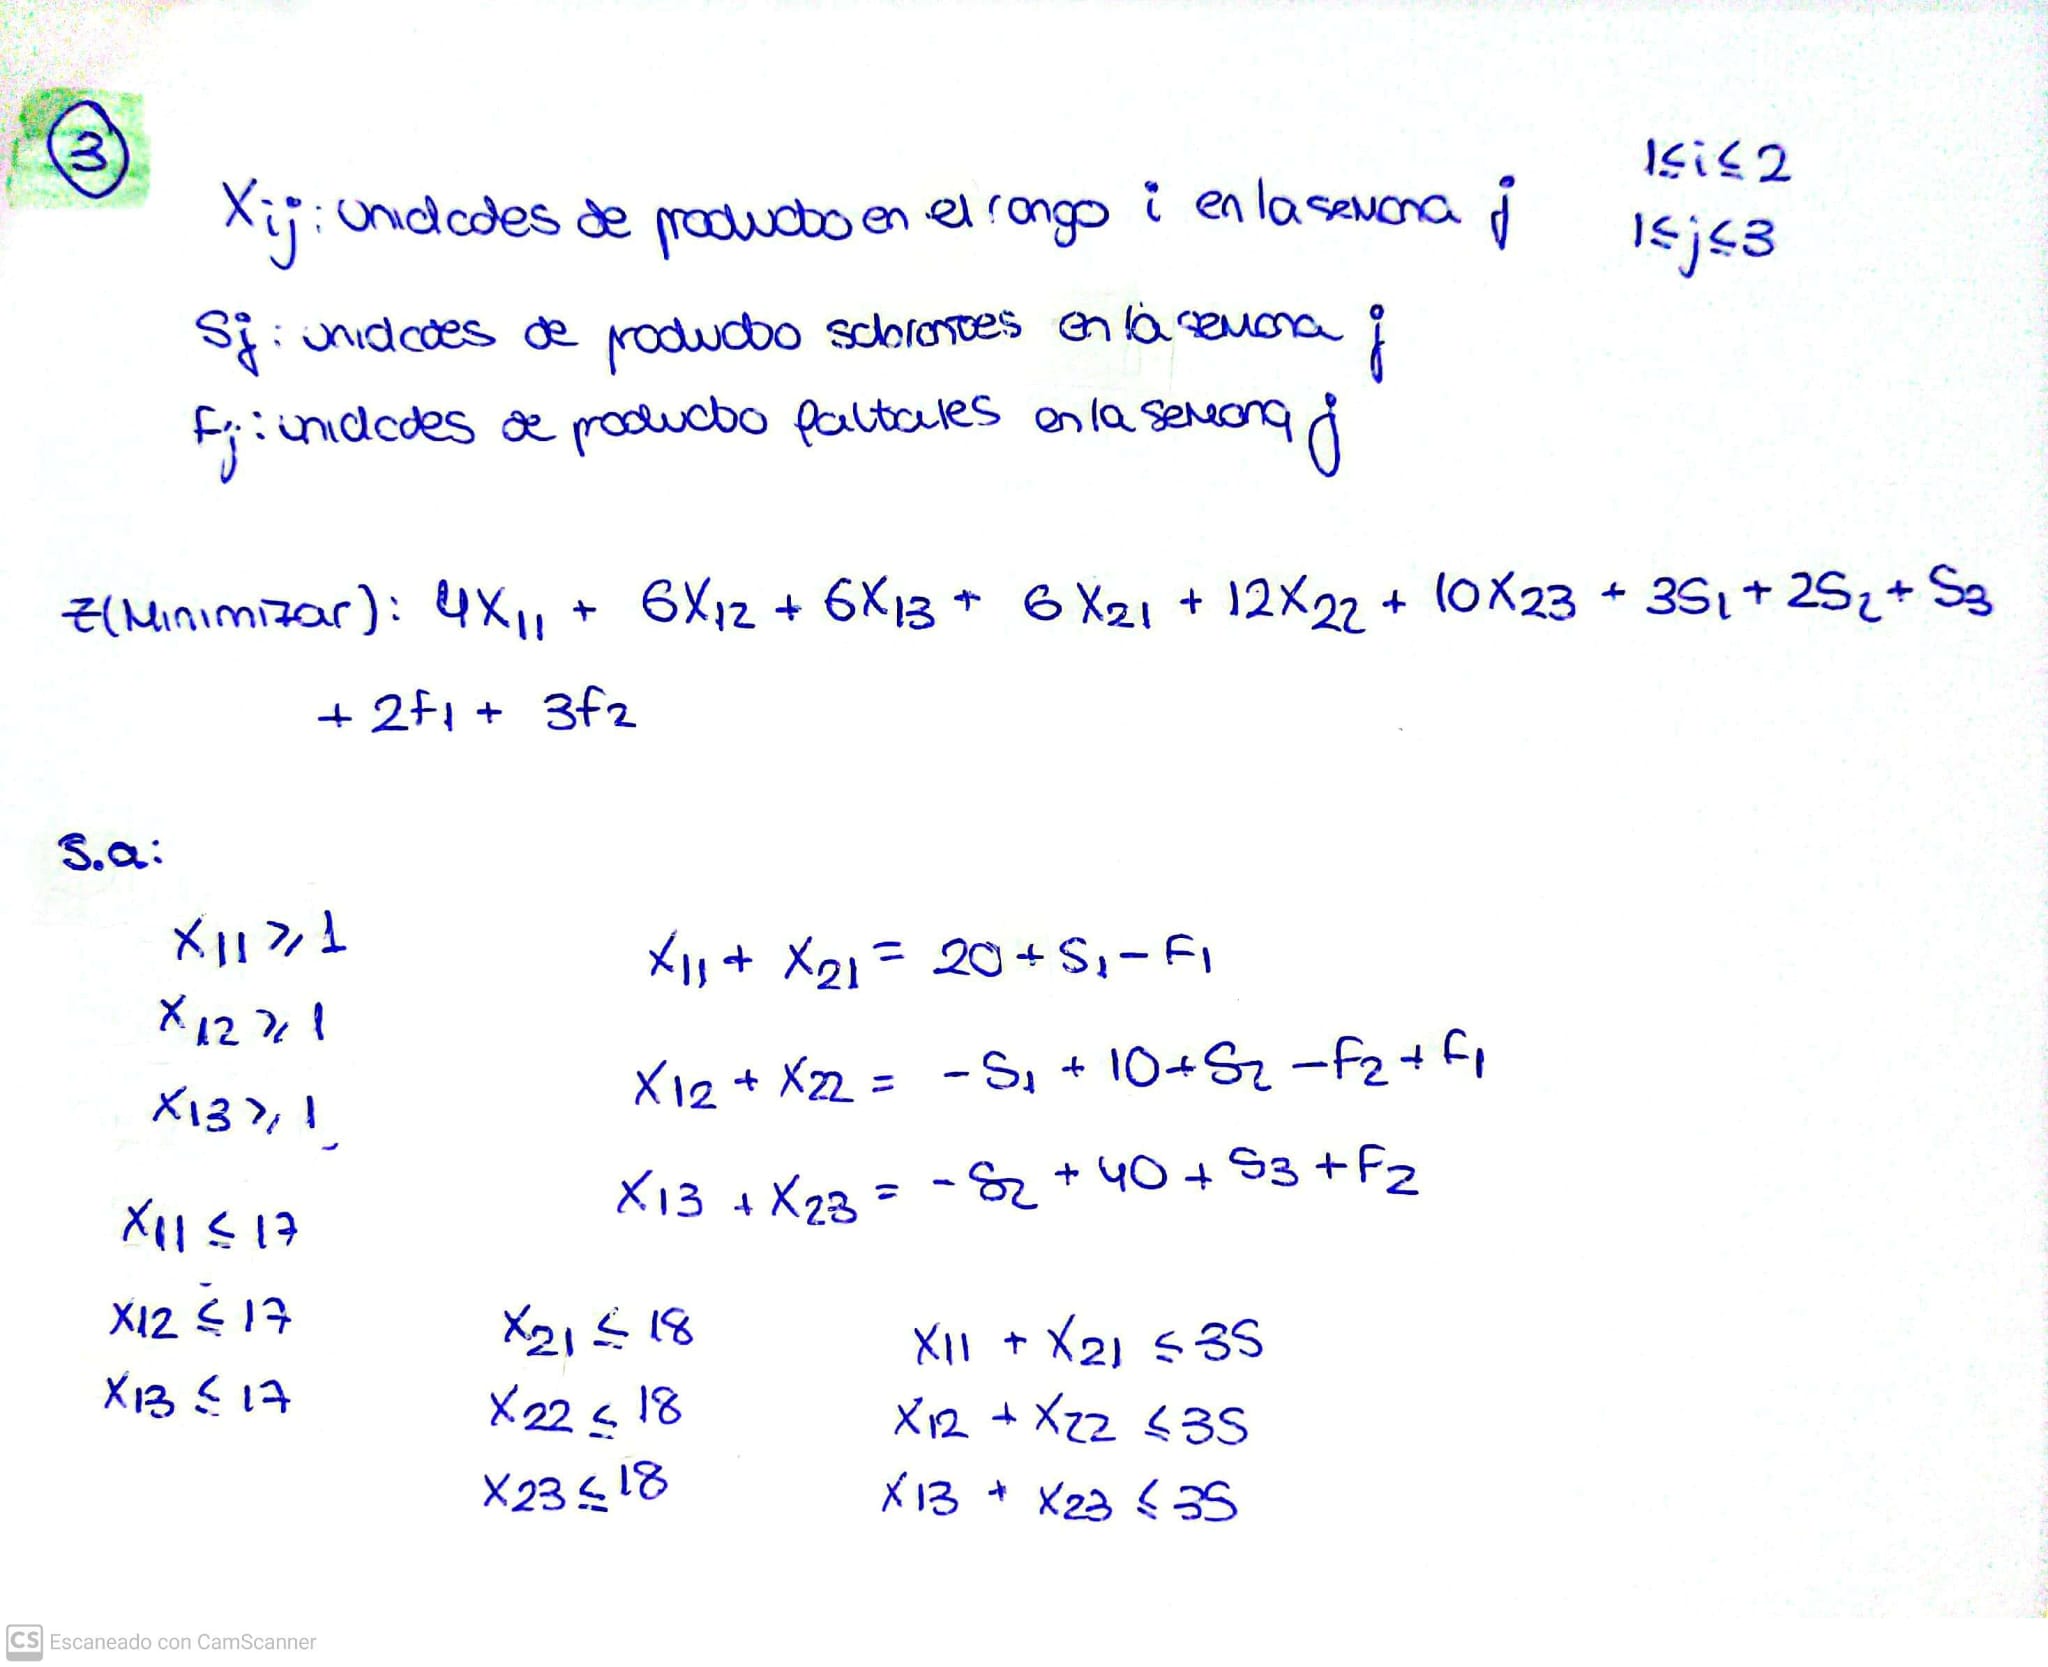 3
Xij: unidades de producto en el rango i en la semana j 1≤i≤2
1≤j≤3
Sj: unidades de producto sobrantes en la semana j
Fj: unidades de producto faltantes en la semana j
Z(Minimizar): 4X11 + 6X12 + 6X13 + 6X21 + 12X22 + 10X23 + 3S1 + 2S2 + S3
+ 2F1 + 3F2
S.a:
X11 ≥ 1
X12 ≥ 1
X13 ≥ 1
X11 + X21 = 20 + S1 - F1
X12 + X22 = -S1 + 10 + S2 - F2 + F1
X13 + X23 = -S2 + 40 + S3 + F2
X11 ≤ 17
X12 ≤ 17
X13 ≤ 17
X21 ≤ 18
X22 ≤ 18
X23 ≤ 18
X11 + X21 ≤ 35
X12 + X22 ≤ 35
X13 + X23 ≤ 35
CS Escaneado con CamScanner